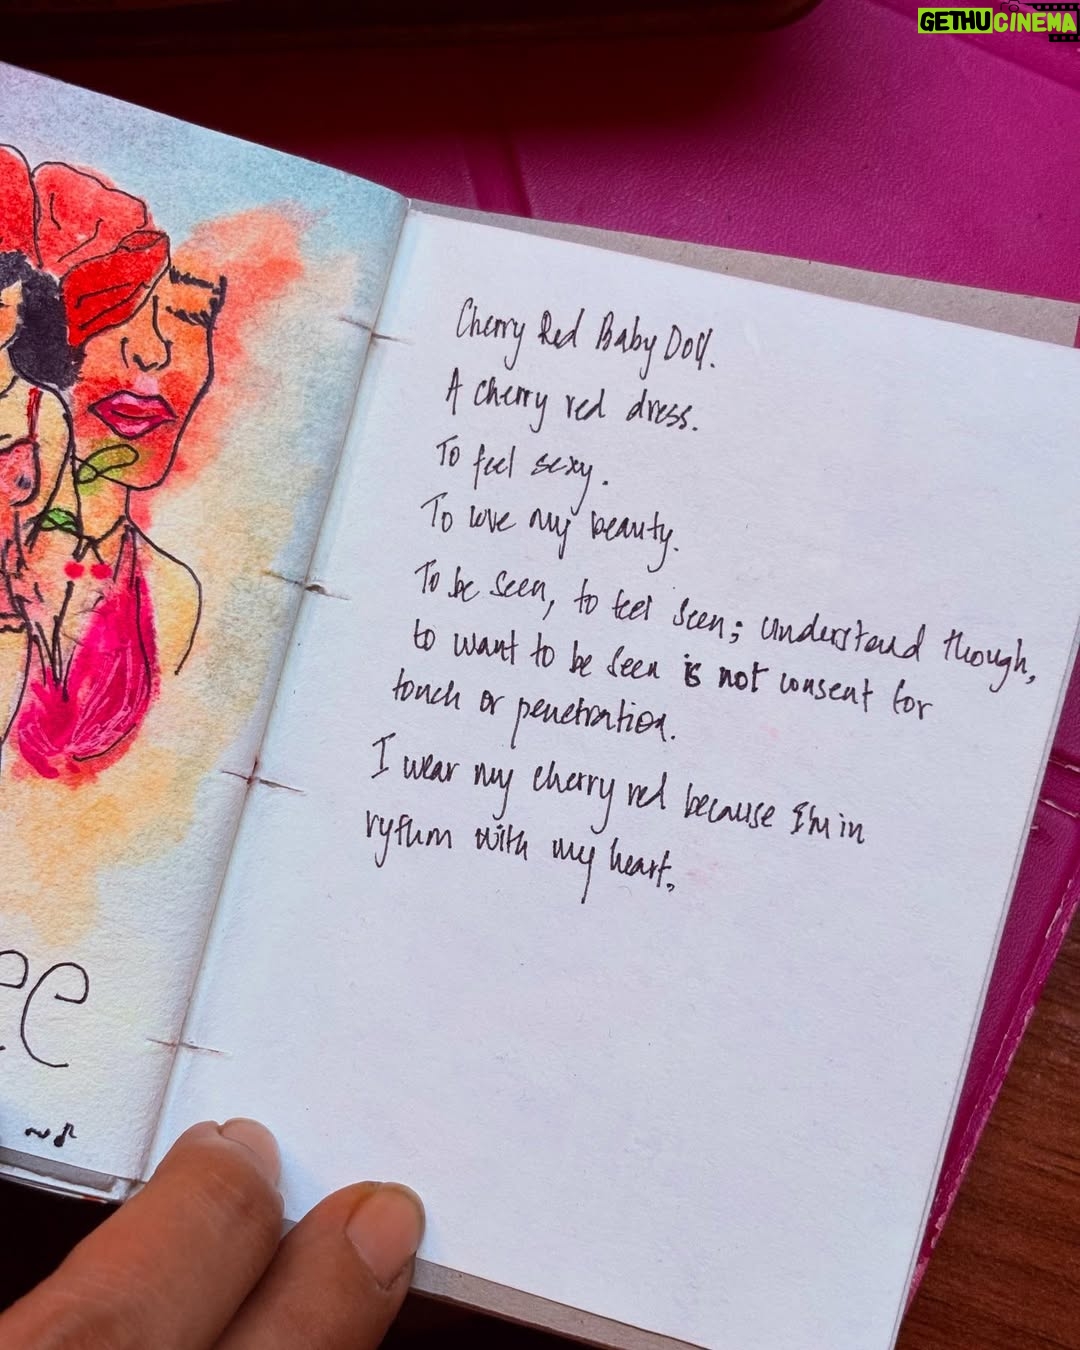 GETHUCINEMA
Cherry Red Baby Doll.
A cherry red dress.
To feel sexy.
To love my beauty.
To be seen, to feel seen; understand though,
to want to be seen is not consent for
touch or penetration.
I wear my cherry red because I'm in
rythm with my heart.
ee